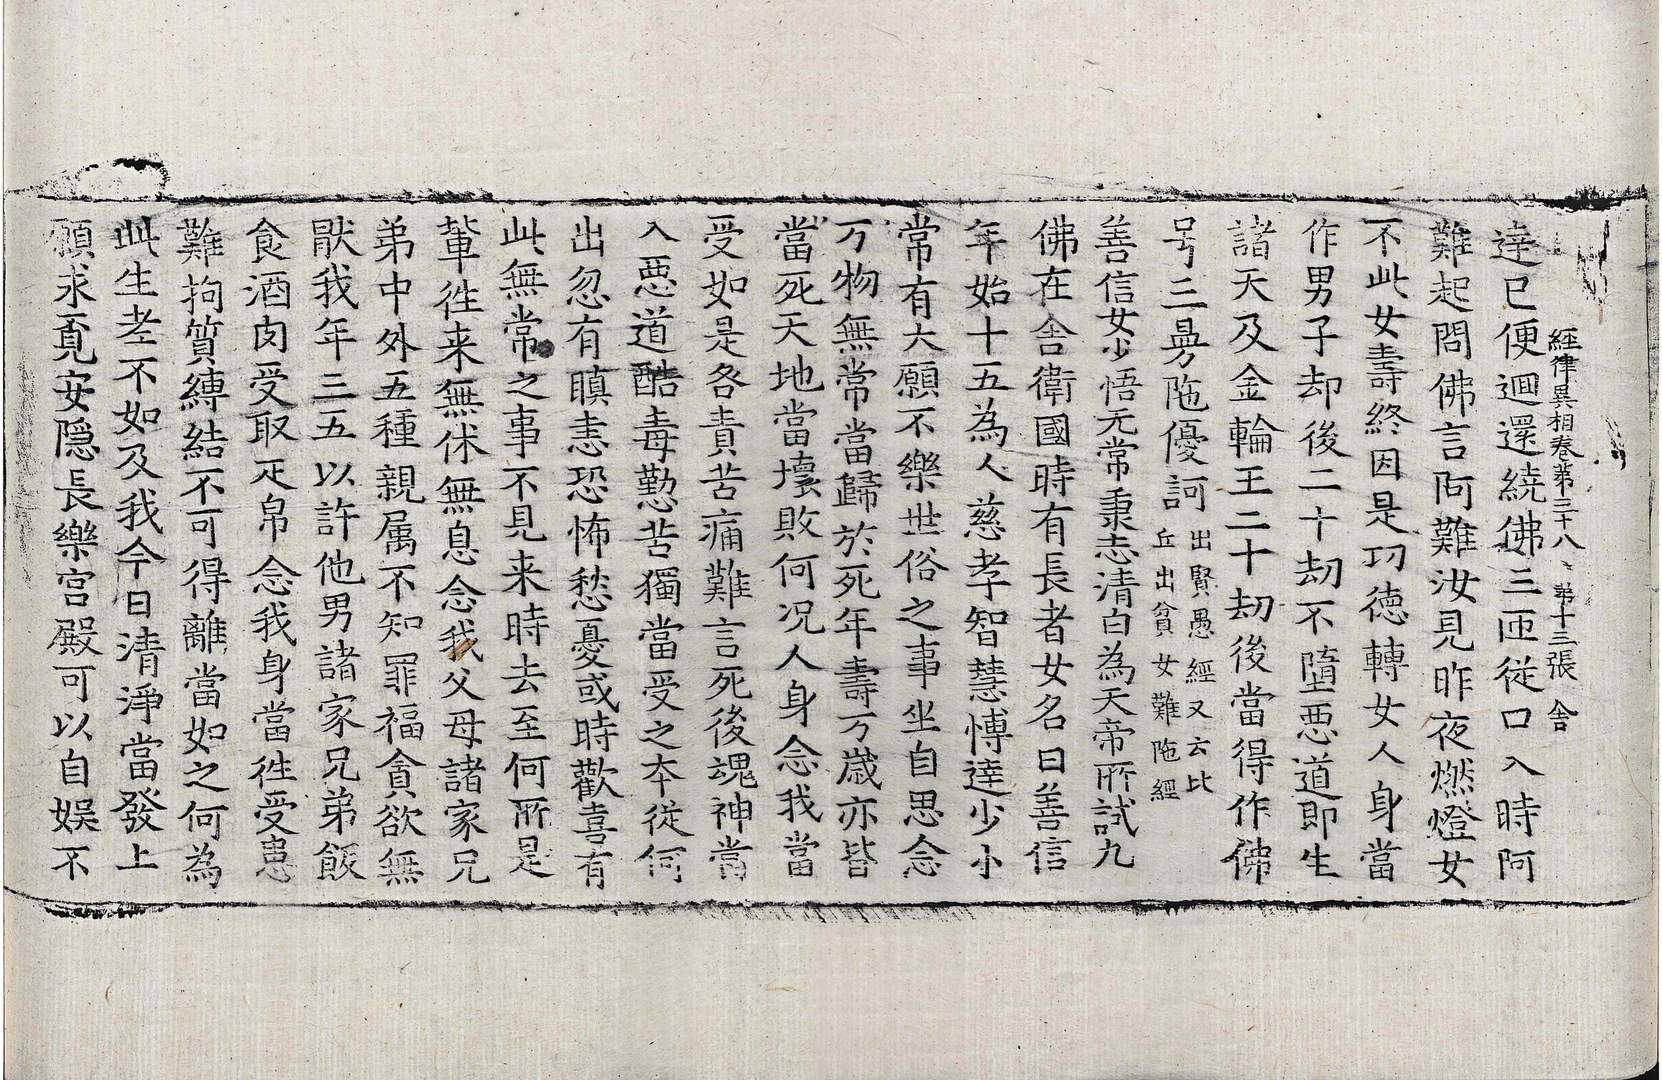 經律異相卷第三十八 第十三張 舍
達已便迴還繞佛三匝從口入時阿
難起問佛言阿難汝見昨夜燃燈女
不此女壽終因是功德轉女人身當
作男子却後二十劫不墮惡道即生
諸天及金輪王二十劫後當得作佛
号三曼陁優訶出賢愚經又云比
丘出貧女難陁經
善信女少悟无常秉志清白為天帝所試九
佛在舍衛國時有長者女名曰善信
年始十五為人慈孝智慧博達少小
常有大願不樂世俗之事坐自思念
万物無常當歸於死年壽万歲亦皆
當死天地當壞敗何况人身念我當
受如是各責苦痛難言死後魂神當
入惡道酷毒懃苦獨當受之本従何
出忽有瞋恚恐怖愁憂或時歡喜有
此無常之事不見来時去至何所是
輩徃来無休無息念我父母諸家兄
弟中外五種親属不知罪福貪欲無
猒我年三五以許他男諸家兄弟飯
食酒肉受取疋帛念我身當徃受患
難拘質縛結不可得離當如之何為
此生老不如及我今日清淨當發上
願求覓安隱長樂宮殿可以自娱不